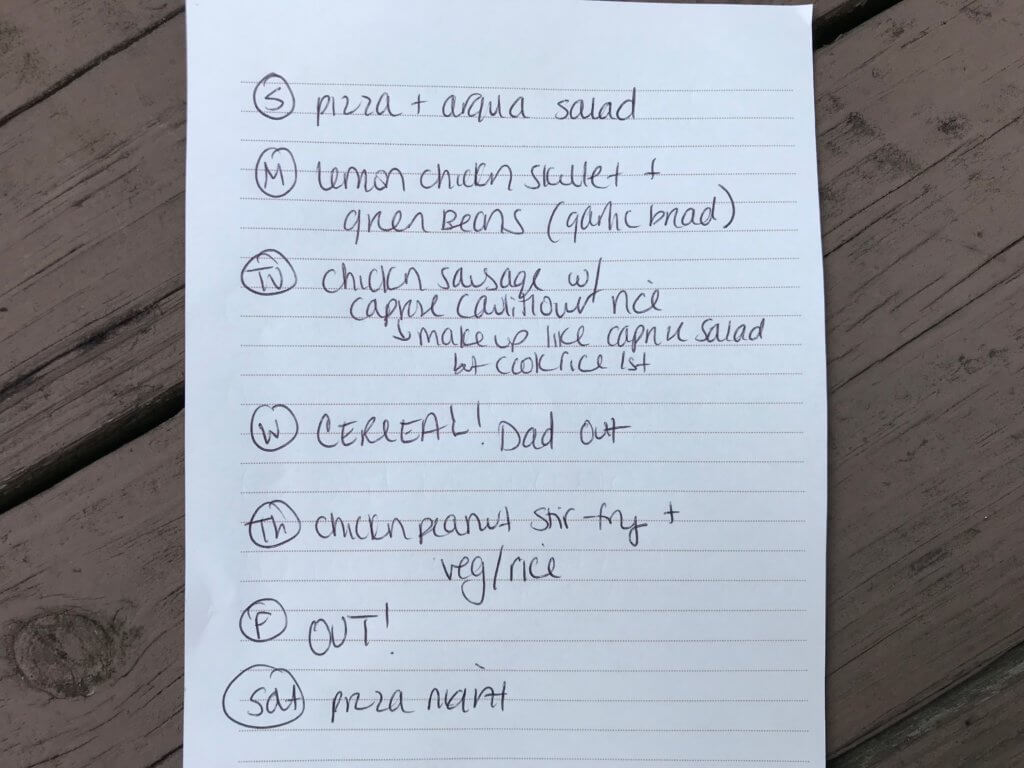 S pizza + arqua salad
M lemon chickn skillet +
green Beans (garlic bread)
TU chickn sausage w/
caprese cauliflour rice
↳ make up like caprese salad
but cook rice 1st
W CEREAL! Dad out
Th chickn peanut stir-fry +
veg/rice
F OUT!
Sat pizza night